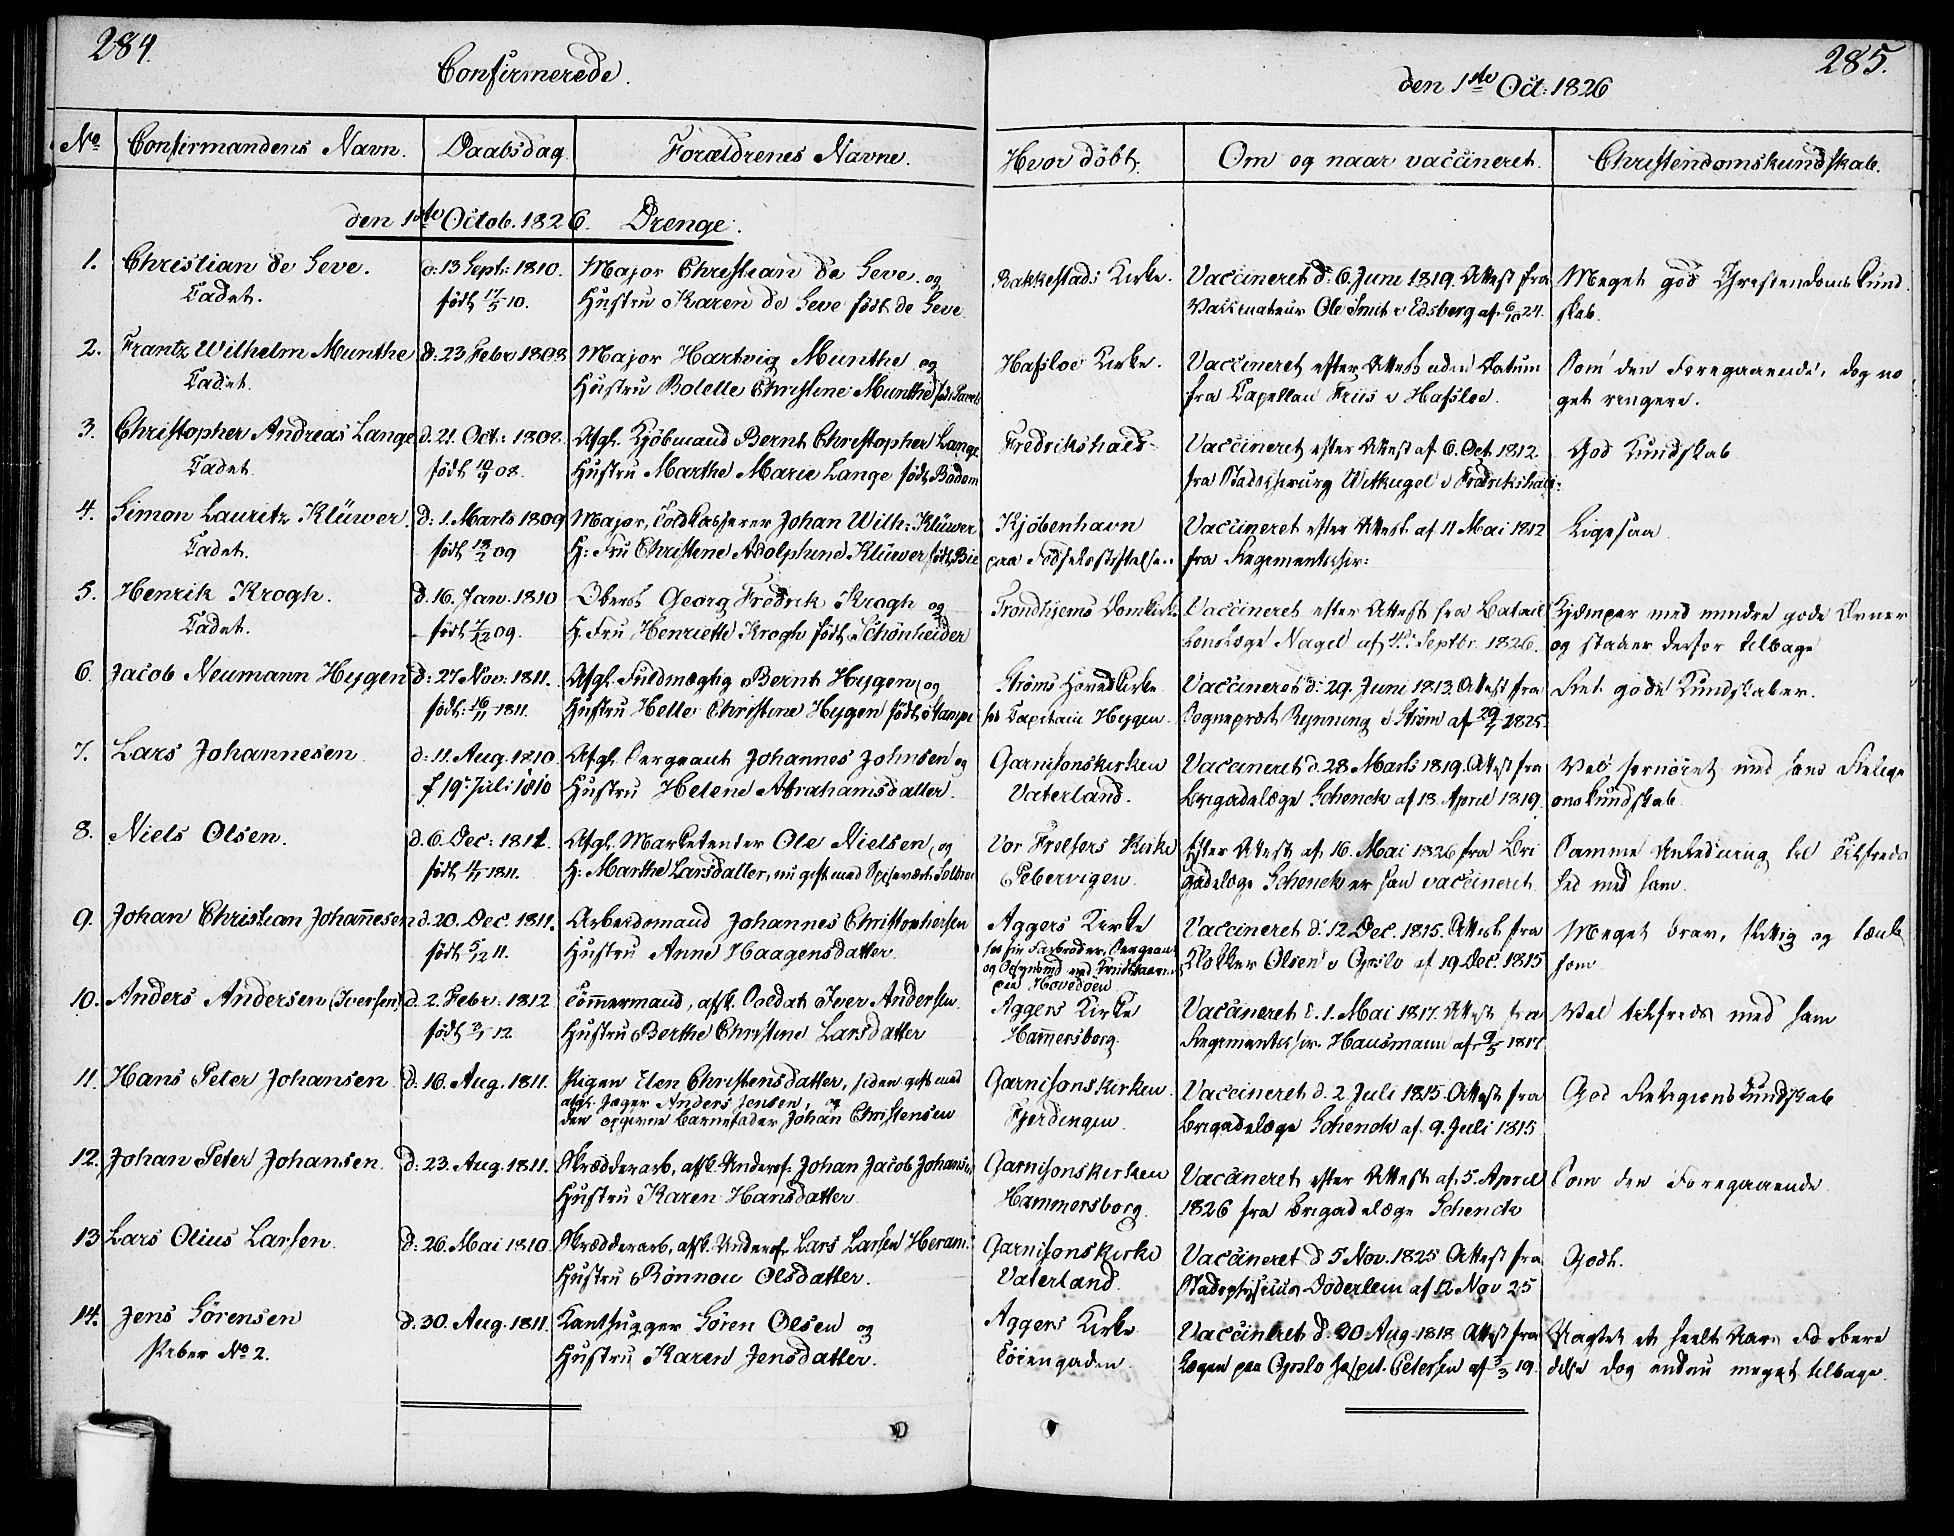 284.
Confirmerede.
No Confirmandens Navn. Daabsdag Forældrenes Navne.
den 1ste Octob. 1826. Drenge.
1. Christian de Seve. d: 13 Sept: 1810. Major Christian de Seve og
Cadet. født 17/5 10. Hustru Karen de Seve født de Seve
2. Frantz Wilhelm Munthe d: 23 Febr 1808 Major Hartvig Munthe og
Cadet. Hustru Bolette Christine Munthe født
3. Christopher Andreas Lange d. 21. Oct: 1808. Afgl. Kjøbmand Bernt Christopher Lange
Cadet. født 08. Hustru Marthe Marie Lange født Badom
4. Simon Lauritz Klüwer d: 1. Marts 1809 Major, Toldkasserer Johan Wilh: Klüwer
Cadet. født 09 H: Fru Christine Adolphine Klüwer født Bie
5. Henrik Krogh. d. 16. Jan. 1810 Oberst Georg Fredrik Krogh og
Cadet. født 7/12 09. H. Fru Henriette Krogh født Schönheider
6. Jacob Neumann Hygen d: 27 Nov: 1811. Afgl. Fuldmægtig Bernt Hygen, og
født: 16/11 1811. Hustru Helle Christine Hygen født Stampe
7. Lars Johannesen d: 11. Aug. 1810. Afgl. Sergeant Johannes Johnsen og
f 19de Juli 1810 Hustru Helene Abrahamsdatter.
8. Niels Olsen. d. 6. Dec: 1811. Afgl. Marketenter Ole Nielsen, og
født 1811. H: Marthe Larsdatter, nu gift med Spisevært
9. Johan Christian Johannesen d. 20. Dec. 1811. Arbeidsmand Johannes Christophersen
født 5/12 11. Hustru Anne Haagensdatter.
10. Anders Andersen (Iversen) d. 2. Febr. 1812 Tømmermand, afsk. Soldat Iver Andersen
født 3/1 12. Hustru Berthe Christine Larsdatter
11. Hans Peter Johansen d. 16. Aug. 1811. Pigen Elen Christensdatter, siden gift med
afgl. Jæger Anders Jensen, og
den opgivne Barnefader Johan Christensen
12. Johan Peter Johansen. d: 23. Aug. 1811. Skrædderarb, afsk. Underof: Johan Jacob Johansen
Hustru Karen Hansdatter
13 Lars Olius Larsen. d: 26. Mai 1810. Skrædderarb, afsk. Underof. Lars Larsen Heram.
Hustru Rönnou Olsdatter.
14. Jens Sörensen d. 30. Aug. 1811. Kanthugger Sören Olsen og
Peber No 2. Hustru Karen Jensdatter.
285.
den 1ste Oct: 1826
Hvor döbt. Om og naar vaccineret. Christendomskundskab.
Rakkestads Kirke. Vaccineret d: 6. Juni 1819. Attest fra Meget god Christendoms Kund
Vaccinateur Ole Smit i Edsberg af 6/10 24. skab.
Hafsloe Kirke. Vaccineret efter Attest uden Datum Som den Foregaaende, dog no
fra Capellan Friis i Hafsloe. get ringere.
Fredrikshald Vaccineret efter Attest af 6. Oct. 1812 God Kundskab
fra Stadschirurg Witkugel i Fredrikshald:
Kjöbenhavn Vaccineret efter Attest af 11 Mai 1812 Ligesaa
paa Fødselsstiftelsen. fra Regimentschir:
Trondhjems Domkirke Vaccineret efter Attest fra Batail Kjæmper med mindre gode Evner
lonslæge Nagel af 4de Septbr. 1826. og staaer derfor tilbage
Ströms Hovedkirke Vaccineret d: 29. Juni 1813. Attest fra Ret gode Kundskaber.
hos Capitain Hygen. Sognepræst Rynning i Ström af 29/7 1825.
Garnisonskirken Vaccineret d. 28 Marts 1819. Attest fra Vel fornøiet med hans Religi
Vaterland. Brigadelæge Schenck af 13 April 1819. onskundskab.
Vor Frelsers Kirke Efter Attest af 16. Mai 1826 fra Bri Samme Anledning til Tilfreds
Pebervigen. gadelæge Schenck er han vaccineret. hed med ham.
Aggers Kirke Vaccineret d: 12 Dec. 1815. Attest fra Meget brav, flittig og tænk
hos sin Farbroder, Sergeant
Klokker Olsen i Opslo af 19 Dec. 1815 som
paa Hovedøen
Aggers Kirke Vaccineret d. 1. Mai 1817. Attest fra Vel tilfreds med ham
Hammersborg. Regimentschir. Hausmann af 9/5 1817
Garnisonskirken Vaccineret d. 2 Juli 1815. Attest fra God Religions Kundskab
Fjerdingen. Brigadelæge Schenck af 9. Juli 1815
Garnisonskirken Vaccineret efter Attest af 5. April Som den Foregaaende.
Hammersborg. 1826 fra Brigadelæge Schenck
Garnisonskirke Vaccineret d 5 Nov. 1825 Attest fra Godt.
Vaterland. Stadsphysicus Döderlein af 12 Nov 25
Aggers Kirke Vaccineret d. 30 Aug. 1818 Attest fra Uagtet et heelt Aars Forbere
Töiengaden. Lægen paa Opslo Hospit. Petersen af 3/3 19. delse dog endnu meget tilbage.